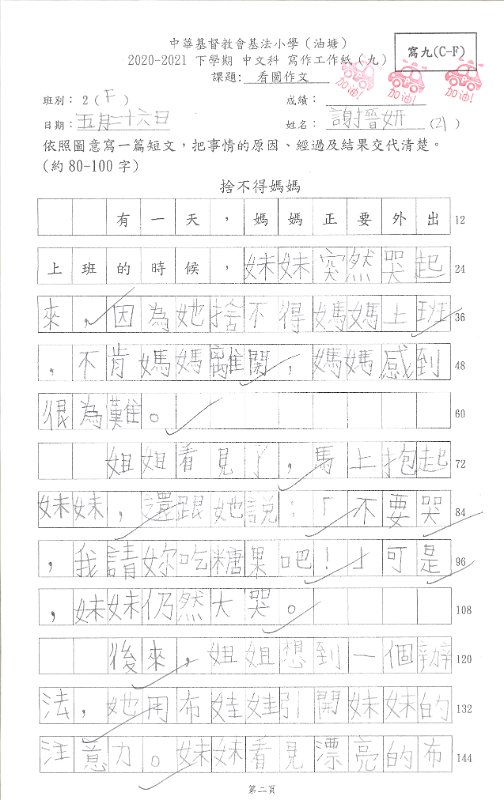 中華基督教會基法小學（油塘）
2020-2021 下學期 中文科 寫作工作紙（九）
寫九(C-F)
課題：看圖作文
加油! 加油! 加油!
班別：2（F） 成績：
日期：五月二十六日 姓名：謝晉妍（21）
依照圖意寫一篇短文，把事情的原因、經過及結果交代清楚。
(約 80-100 字)
捨不得媽媽
有一天，媽媽正要外出 12
上班的時候，妹妹突然哭起 24
來，因為她捨不得媽媽上班 36
，不肯媽媽離開，媽媽感到 48
很為難。 60
姐姐看見了，馬上抱起 72
妹妹，還跟她說：「不要哭 84
，我請妳吃糖果吧！」可是 96
，妹妹仍然大哭。 108
後來，姐姐想到一個辦 120
法，她用布娃娃引開妹妹的 132
注意力。妹妹看見漂亮的布 144
第二頁